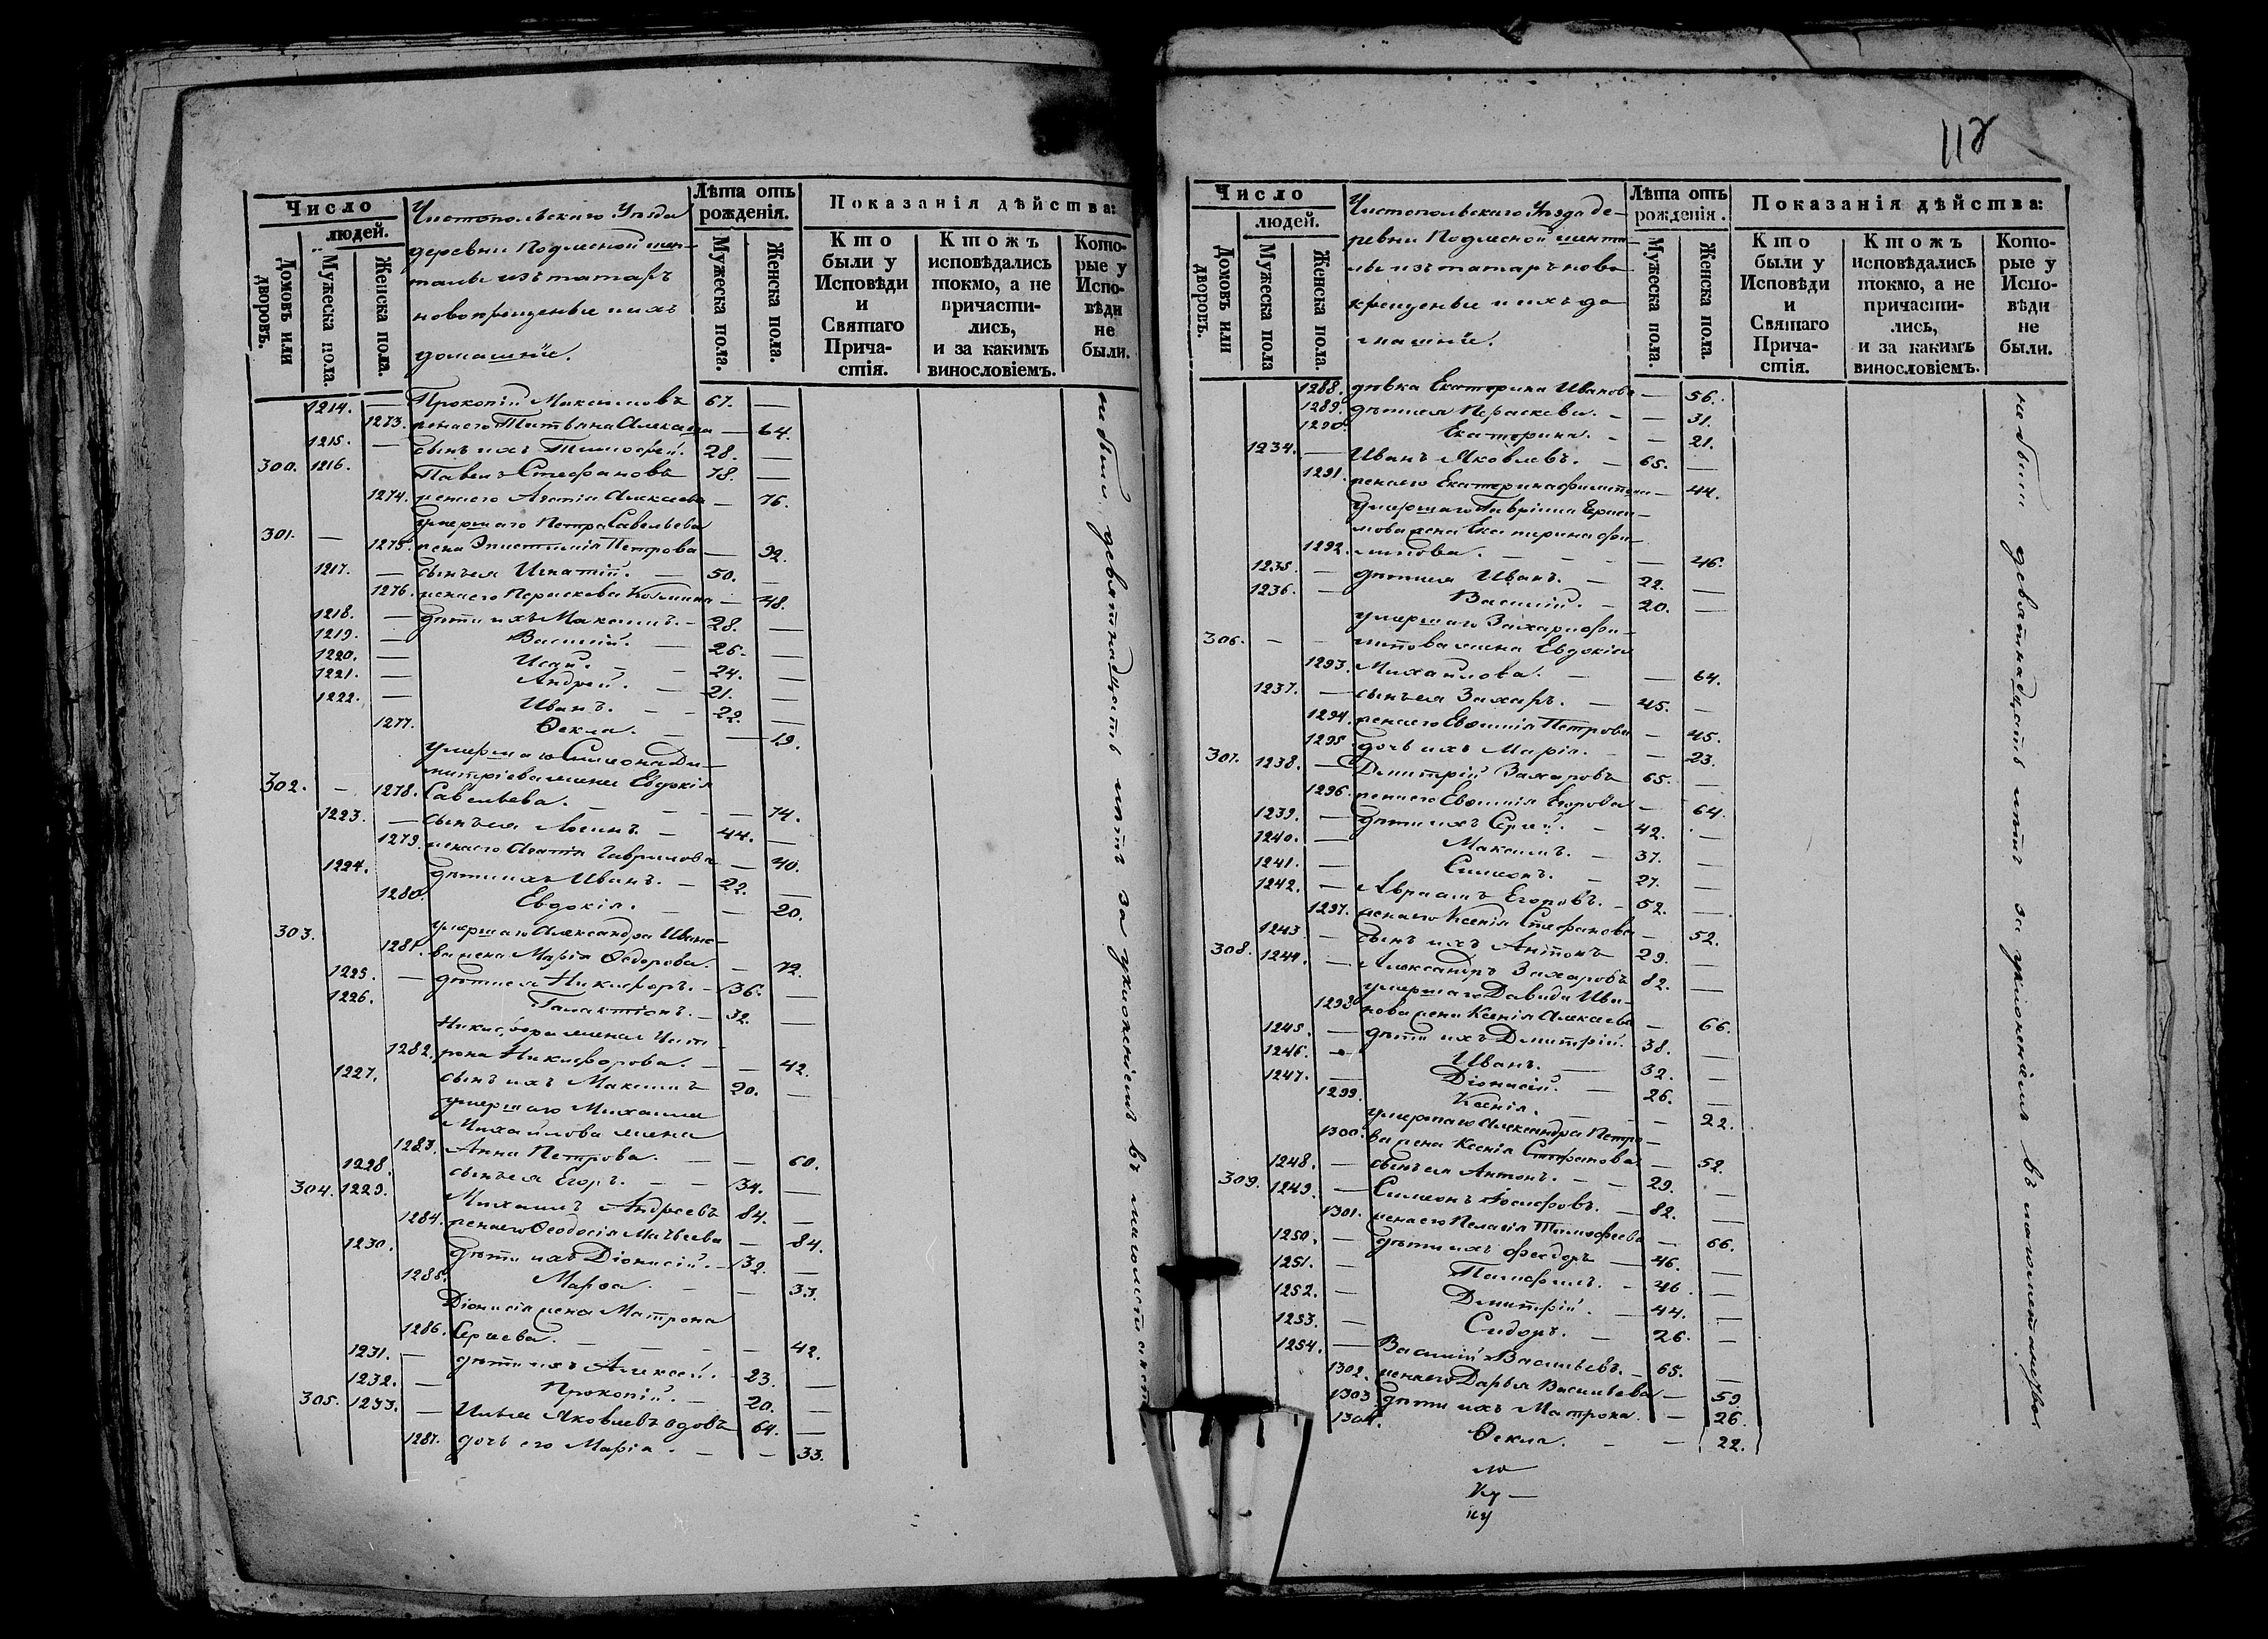 Число
людей.
Домовъ или дворовъ.
Мужеска пола.
Женска пола.
Чистопольскаго Уѣзда
деревни Подлесной шен-
талы изъ татаръ
новокрещеные и ихъ
домашніе.
Лѣта отъ рожденія.
Мужеска пола.
Женска пола.
Показанія дѣйства:
Кто были у Исповѣди и Святаго Прича-стія.
Ктожъ исповѣдались токмо, а не причасти-лись, и за какимъ винословіемъ.
Кото-рые у Испо-вѣди не были.
1214. — Прокопій Максимовъ 67. —
1273. жена его Татьяна Алексѣева — 64.
1215. — сынъ ихъ Тимофей. 28. —
300. 1216. Павелъ Стефановъ 78. —
1274. жена его Агафія Алексѣева — 76.
умершаго Петра Савельева
301. — 1275. жена Эпистимія Петрова — 92.
1217. — сынъ ея Игнатій. — 50. —
1276. жена его Параскева Козмина — 48.
1218. — дѣти ихъ Максимъ. — 28. —
1219. — Василій. — 26. —
1220. — Исай. — 24. —
1221. — Андрей. — 21. —
1222. — Иванъ. — 22. —
1277. Ѳекла. — 19.
умершаго Симеона Ди-
митріева жена Евдокія
302. — 1278. Савельева. — 74.
1223. — сынъ ея Логинъ. — 44. —
1279. жена его Агафія Гаврилова — 40.
1224. дѣти ихъ Иванъ. — 22. —
1280. Евдокія. — 20.
303. умершаго Александра Ивано-
1281. ва жена Марія Ѳедорова. — 72.
1225. — дѣти ея Никифоръ. — 36. —
1226. Галактіонъ. — 32. —
Никифора жена
1282. Никифорова. — 42.
1227. сынъ ихъ Максимъ 20. —
умершаго Михаила
Михайлова жена
1283. Анна Петрова. — 60.
1228. сынъ ея Егоръ. — 34. —
304. 1229. Михаилъ Андреевъ 84. —
1284. жена его Ѳеодосія Матвѣева — 84.
1230. дѣти ихъ Діонисій. — 32. —
1285. Марѳа. — 33.
Діонисія жена Матрона
1286. Сергѣева. — 42.
1231. — дѣти ихъ Алексѣй. 23. —
1232. — Прокопій. — 20. —
305. 1233. — Илья Яковлевъ вдовъ 64. —
1287. дочь его Марія. — 33.
не были девятнадцать лѣтъ за уклоненіемъ въ
112
Число
людей.
Домовъ или дворовъ.
Мужеска пола
Женска пола.
Чистопольскаго Уѣзда де-
ревни Подлесной шента-
лы изъ татаръ ново
крещеные и ихъ до
машніе.
Лѣта отъ рожденія.
Мужеска пола.
Женска пола.
Показанія дѣйства:
Кто были у Исповѣди и Святаго Прича-стія.
Ктожъ исповѣдались токмо, а не причасти-лись, и за какимъ винословіемъ.
Кото-рые у Испо-вѣди не были.
1288. дѣвка Екатерина Иванова — 56.
1289. дѣти ея Параскева. — 31.
1290. Екатерина. — 21.
1234. — Иванъ Яковлевъ. — 65. —
1291. жена его Екатерина — 44.
умершаго Гавріила
жена Екатерина Фи-
1292. липова. — 46.
1235. — дѣти ея Иванъ. — 22. —
1236. — Василій. — 20. —
умершаго Захара Фи-
306. — липова жена Евдокія
1293. Михайлова. — 64.
1237. — сынъ ея Захаръ. — 45. —
1294. жена его Евѳимія Петрова — 45.
1295. дочь ихъ Марія. — 23.
307. 1238. — Дмитрій Захаровъ 65. —
1296. жена его Евѳимія Егорова — 64.
1239. — дѣти ихъ Сергѣй. — 42. —
1240. — Максимъ. — 37. —
1241. — Симеонъ. — 27. —
1242. — Авраамъ Егоровъ. — 52. —
1297. жена его Ксенія Стефанова — 52.
1243 — сынъ ихъ Антонъ 29. —
308. 1244. — Александръ Захаровъ 82. —
умершаго Давида Ива-
1298 нова жена Ксенія Алексѣева — 66.
1245. — дѣти ихъ Дмитрій. 38. —
1246. — Иванъ. — 32. —
1247. — Діонисій. — 26. —
1299. Ксенія. — 22.
умершаго Александра Петро-
1300. ва жена Ксенія Стефанова — 52.
1248. — сынъ ея Антонъ. — 29. —
309. 1249. — Симеонъ Іосифовъ. — 82. —
1301. жена его Пелагія Тимофеева — 66.
1250. — дѣти ихъ Ѳеодоръ — 46. —
1251. — — 46. —
1252. — Дмитрій. — 44. —
1253. — Сидоръ. — 26. —
1254. — Василій Васильевъ. — 65. —
1302. жена его Дарья Васильева — 59.
1303 дѣти ихъ Матрона. — 26.
1304. Ѳекла. — 22.
не были девятнадцать лѣтъ за уклоненіемъ въ магометанство.